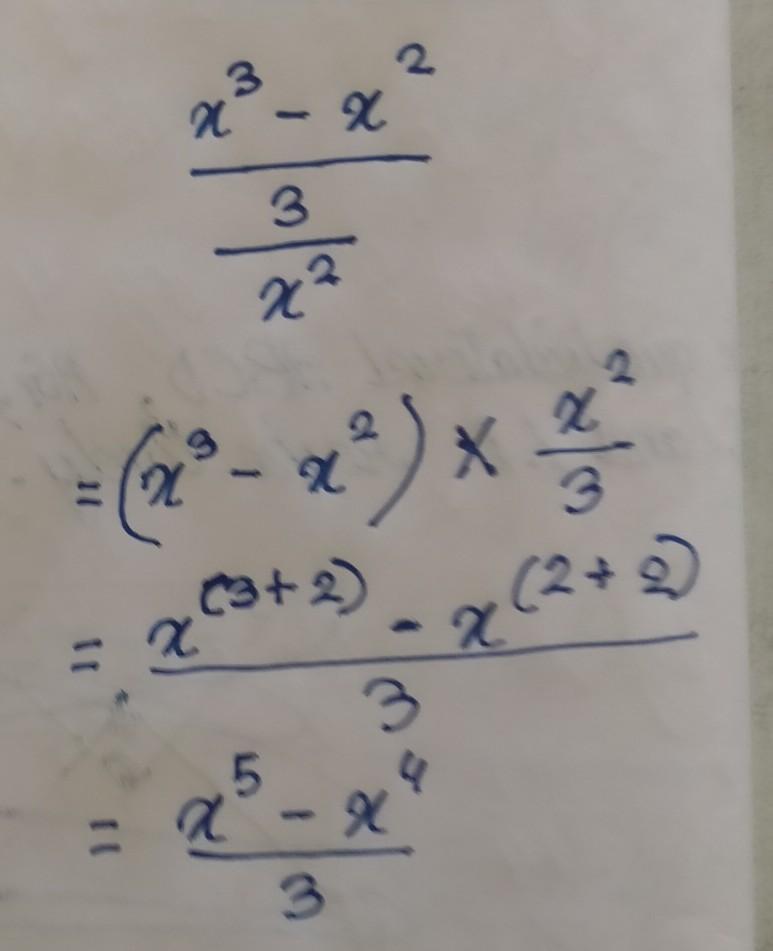 x³ - x²
3
x²
= (x³ - x²) × x²/3
= x^(3+2) - x^(2+2)
3
= x⁵ - x⁴
3